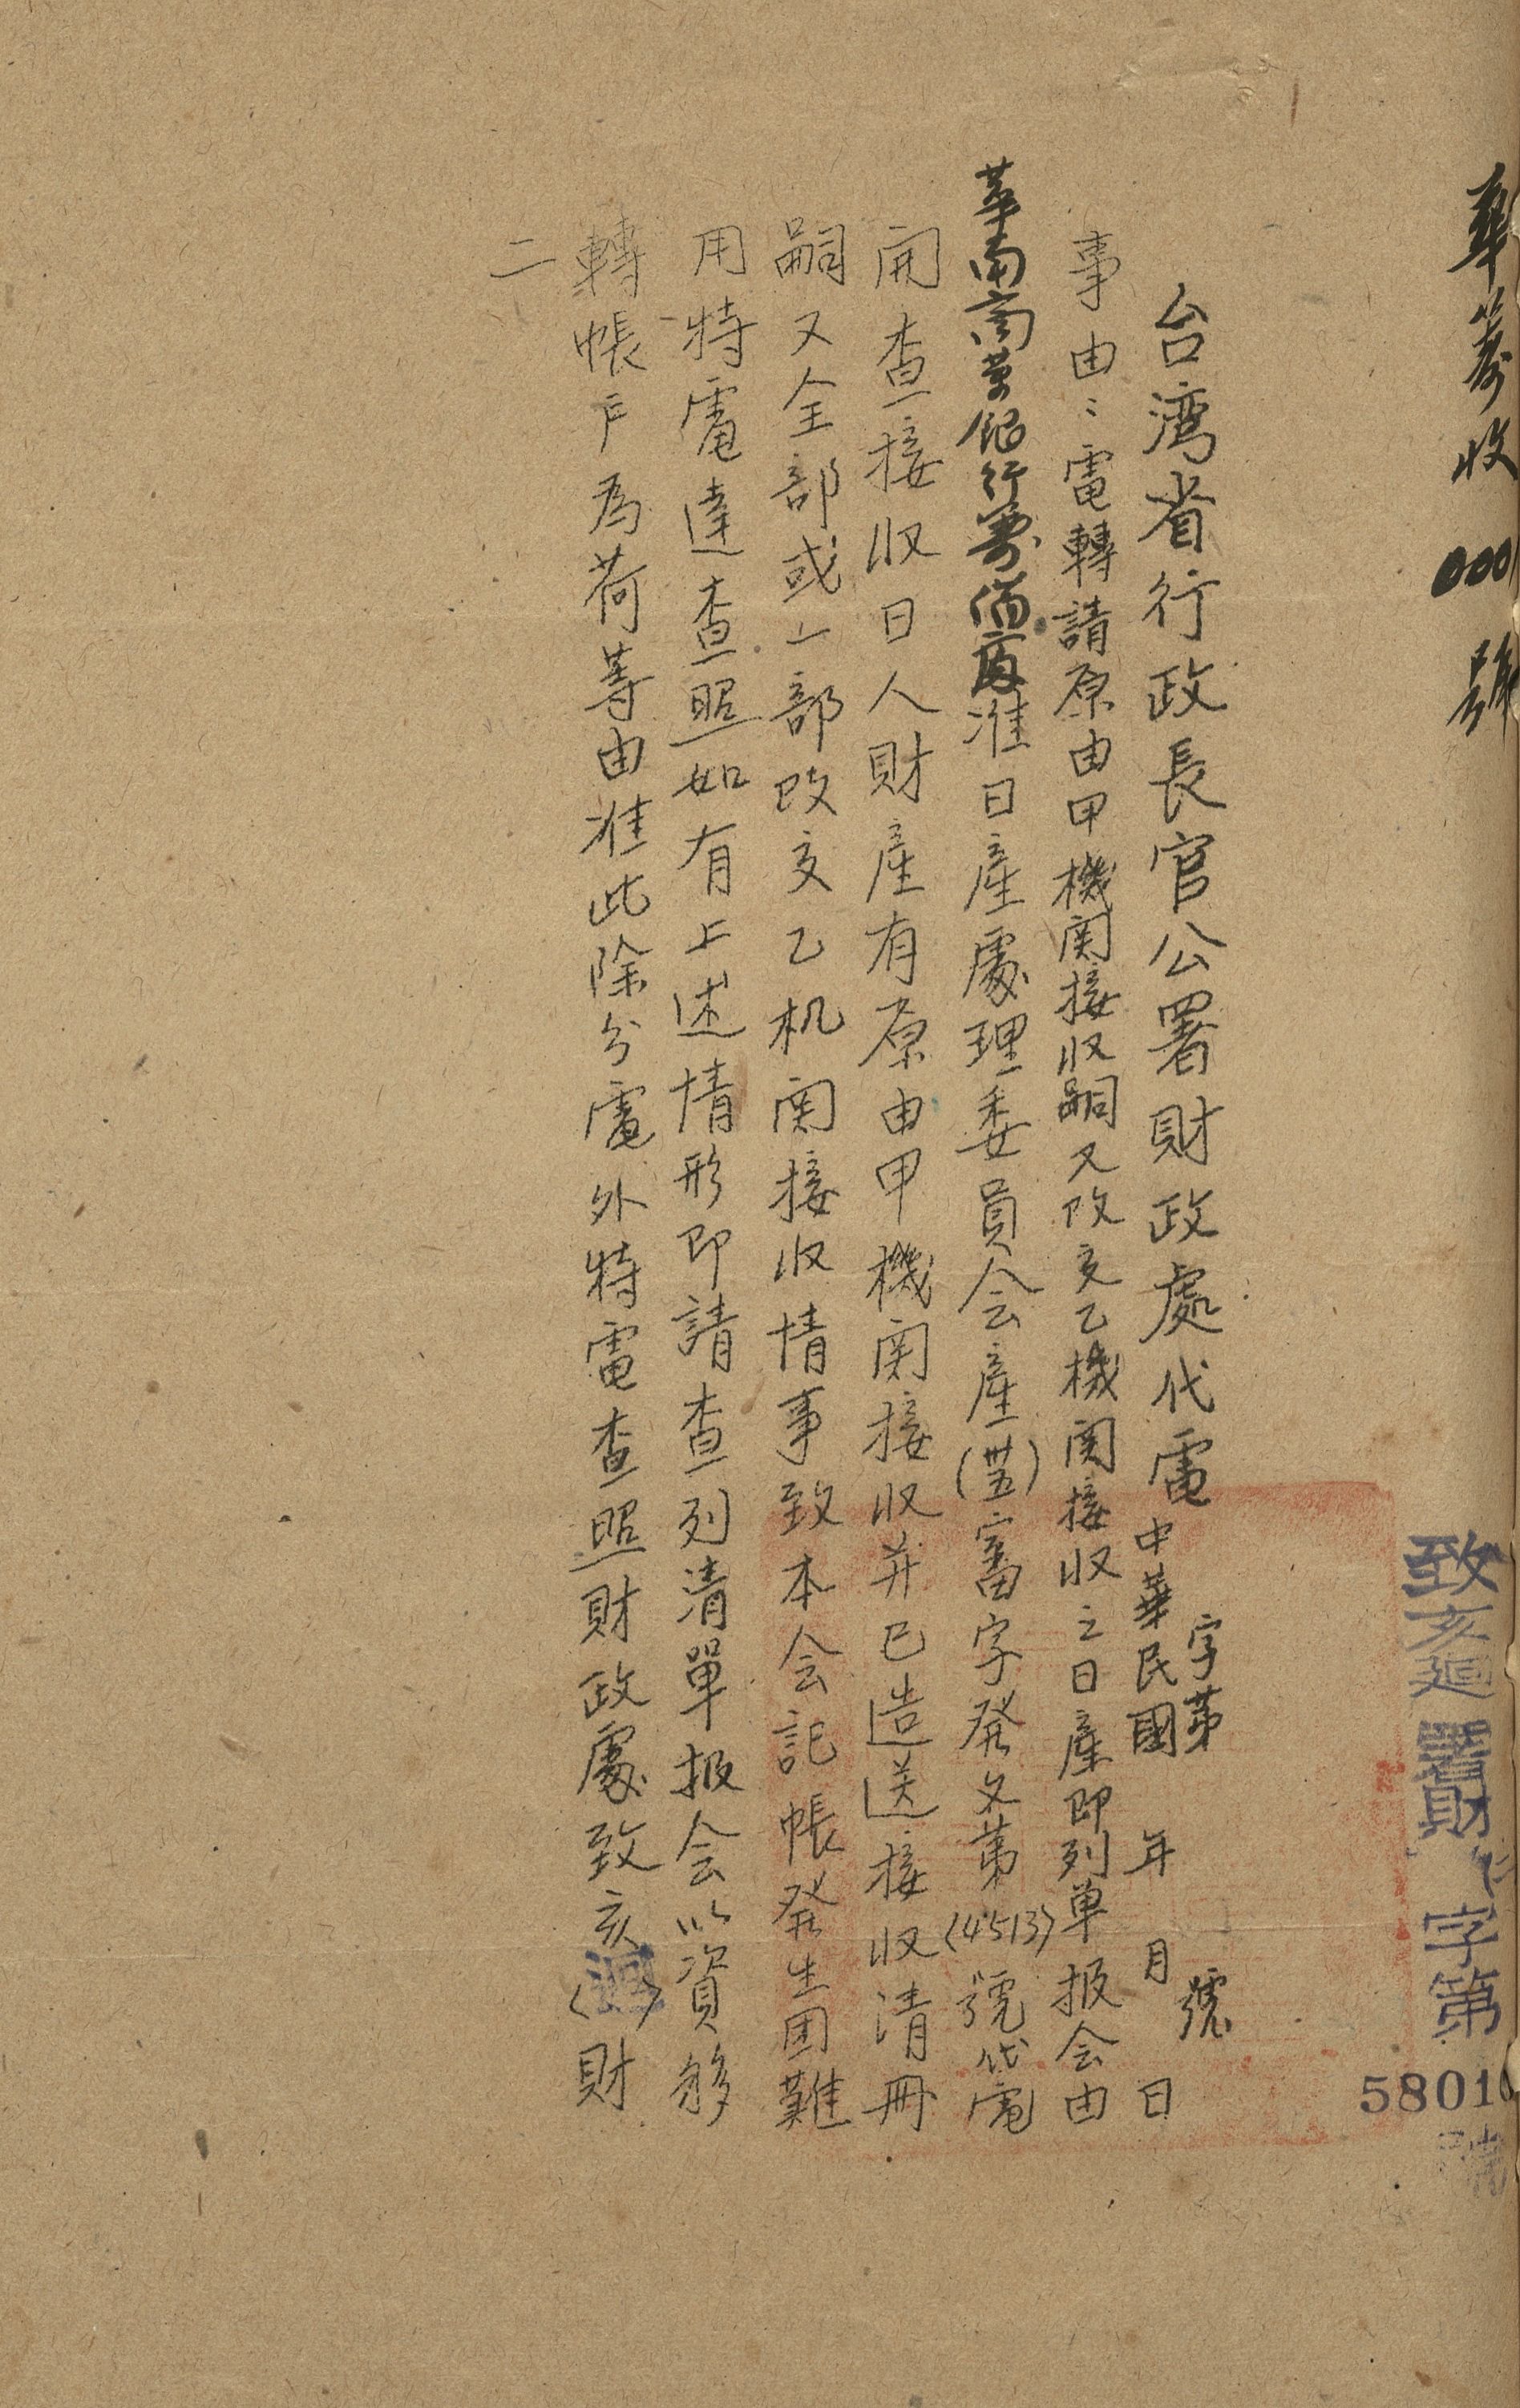 華籌收 000 號
致亥迴署財 字第 5801 號
台湾省行政長官公署財政處代電
字第 號
中華民國 年 月 日
事由：電轉請原由甲機関接収嗣又改交乙機関接収之日産即列单报会由
華南商業银行籌備處准日産處理委員会産(卅五)審字発文第(4513)號代電
開查接収日人財産有原由甲機関接収并已造送接收清冊
嗣又全部或一部改交乙机関接收情事致本会記帳発生困難
用特電達查照如有上述情形即請查列清單报会以資移
轉帳戶為荷等由准此除分電外特電查照財政處致亥(迴)財
二